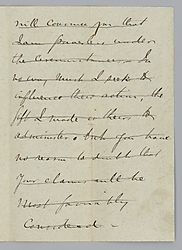 will convince you that
I am powerless under
the circumstances. In
no way must I seek to
influence their action, the
gift I made is theirs to
administer & but you have
no reason to doubt that
your claims will be
most favorably
Considered -